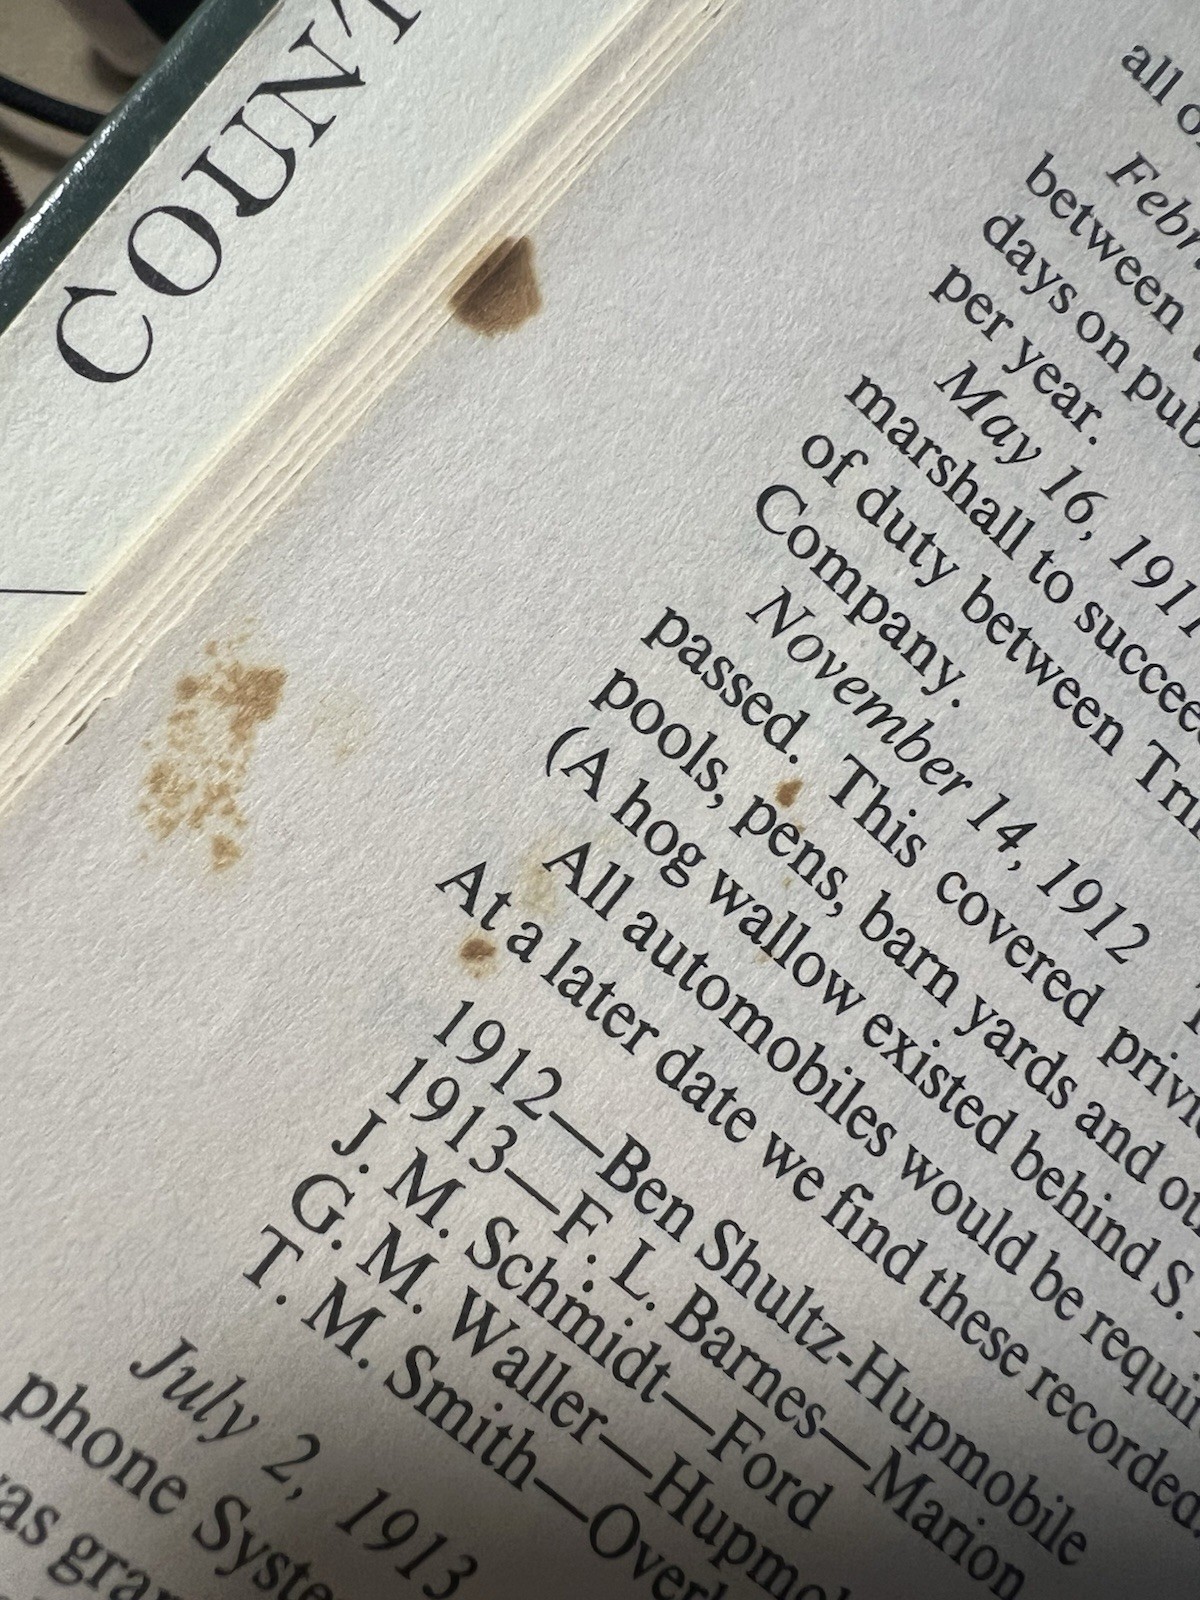 COUNT
all
between
days on
per year.
May 16, 1911
marshall to
of duty between
Company.
November 14, 1912
passed. This covered
pools, pens, barn yards and
(A hog wallow existed behind S.
All automobiles would be
At a later date we find these recorded
1912—Ben Shultz-Hupmobile
1913—F. L. Barnes—Marion
J. M. Schmidt—Ford
G. M. Waller—
T. M. Smith—
July 2, 1913
phone